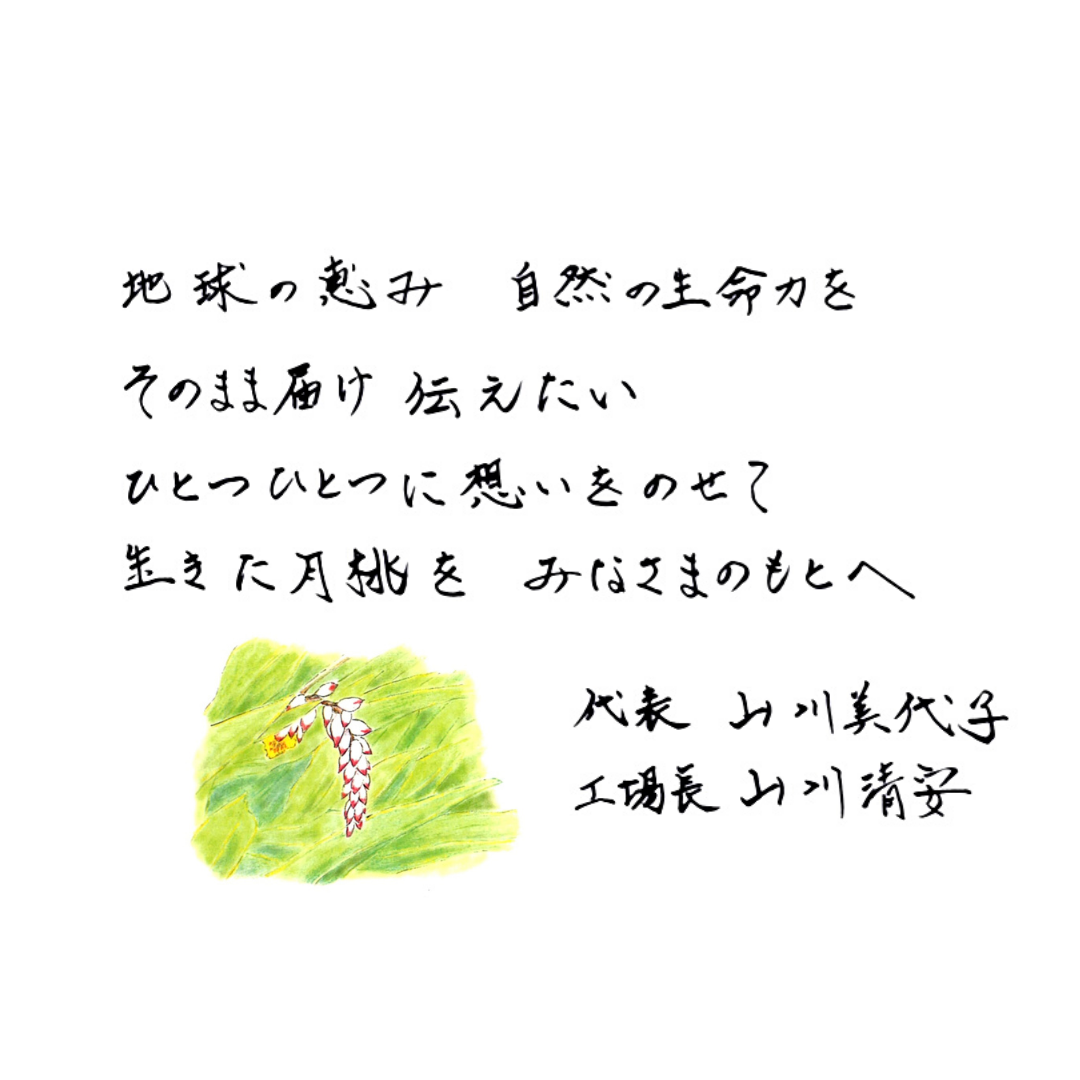 地球の恵み 自然の生命力を
そのまま届け 伝えたい
ひとつひとつに想いをのせて
生きた月桃を みなさまのもとへ
代表 山川美代子
工場長 山川清安